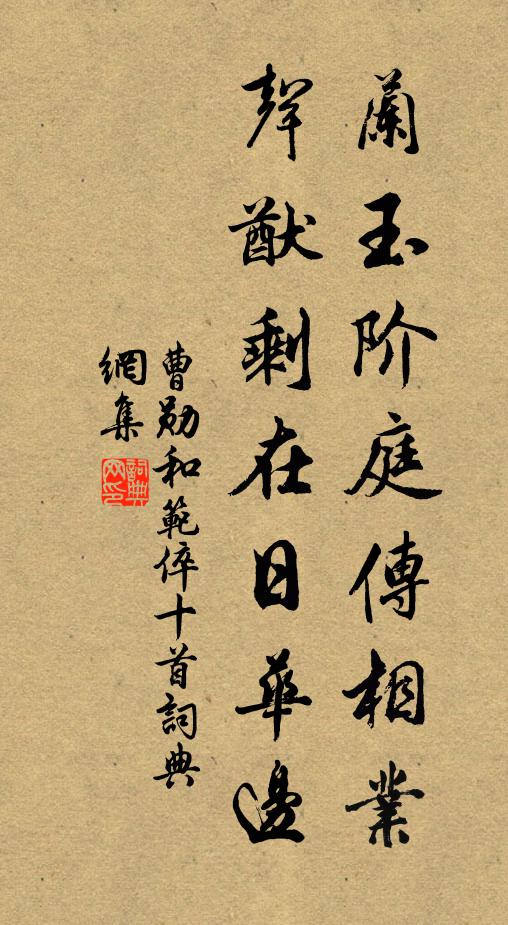 蘭玉阶庭傳相業
聲猷剩在日華邊
曹勛和範倅十首詞典
網集
詞典網印